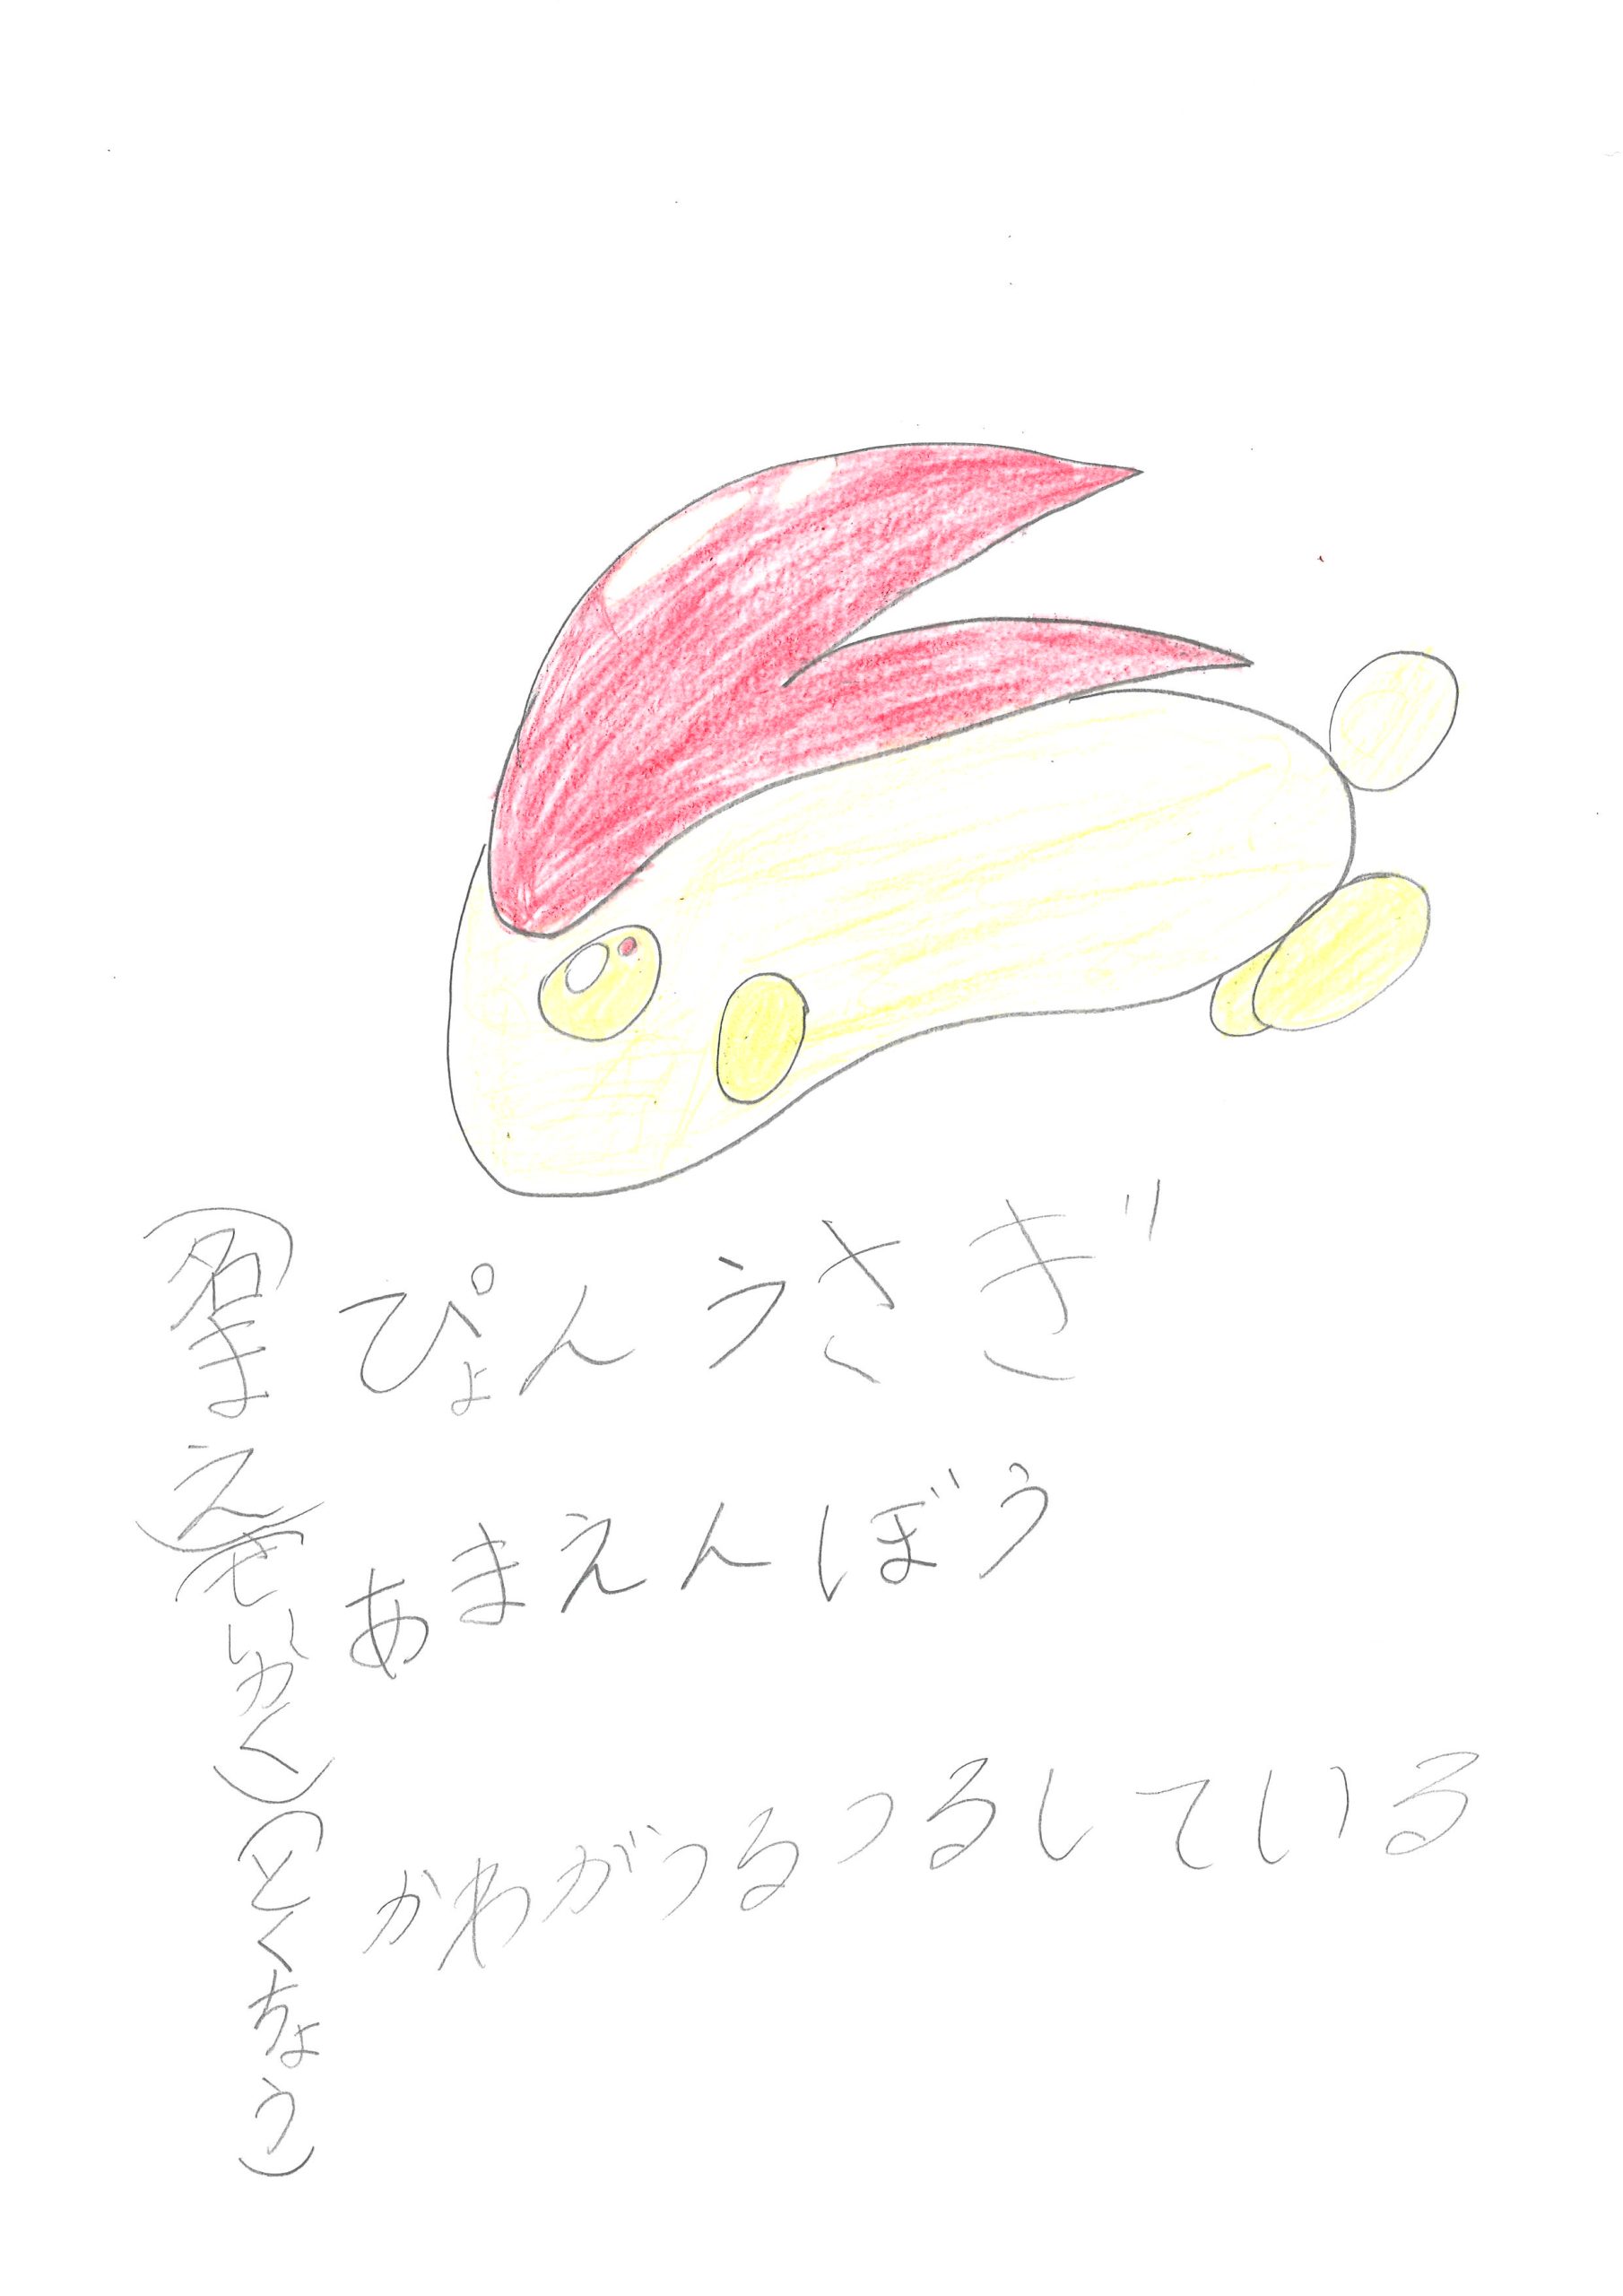 (名まえ) ぴょんうさぎ
(せいかく) あまえんぼう
(とくちょう) かわがつるつるしている